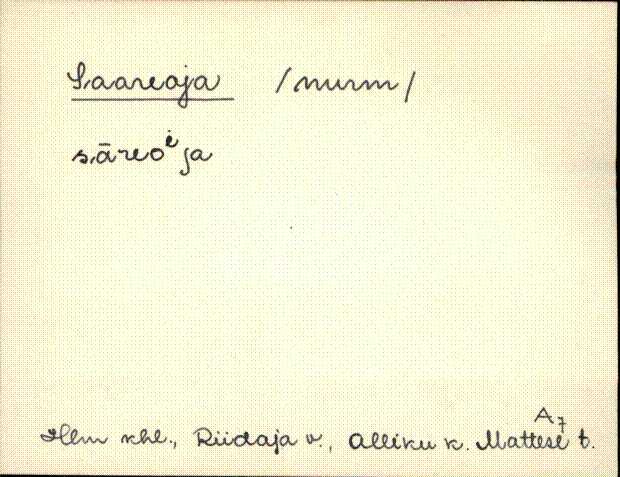 Saareoja /nurm/
sāreoⁱja
A₇
Hlm khl., Riidaja v., Alliku k. Mattese t.